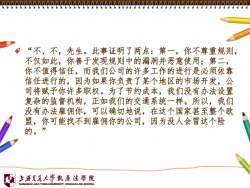 “不，不，先生，此事证明了两点：第一，你不尊重规则，
不仅如此，你善于发现规则中的漏洞并恶意使用；第二，
你不值得信任。而我们公司的许多工作的进行是必须依靠
信任进行的，因为如果你负责了某个地区的市场开发，公
司将赋予你许多职权。为了节约成本，我们没有办法设置
复杂的监督机构，正如我们的交通系统一样。所以，我们
没有办法雇佣你，可以确切地说，在这个国家甚至整个欧
盟，你可能找不到雇佣你的公司，因为没人会冒这个险
的。”
上海交通大学凯原法学院
SHANGHAI JIAO TONG UNIVERSITY KOGUAN LAW SCHOOL